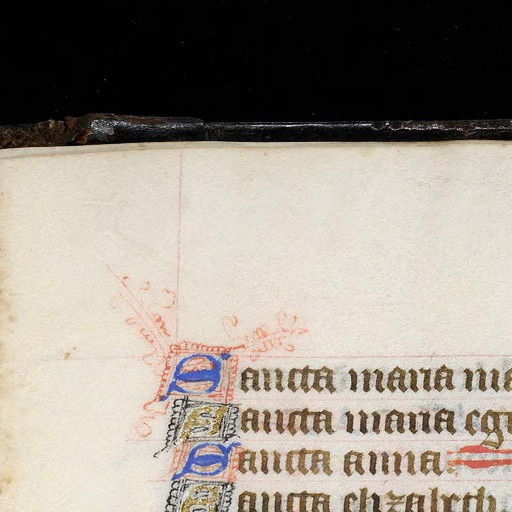 Sancta maria ma
Sancta maria egi
Sancta anna.
Sancta elizabeth.